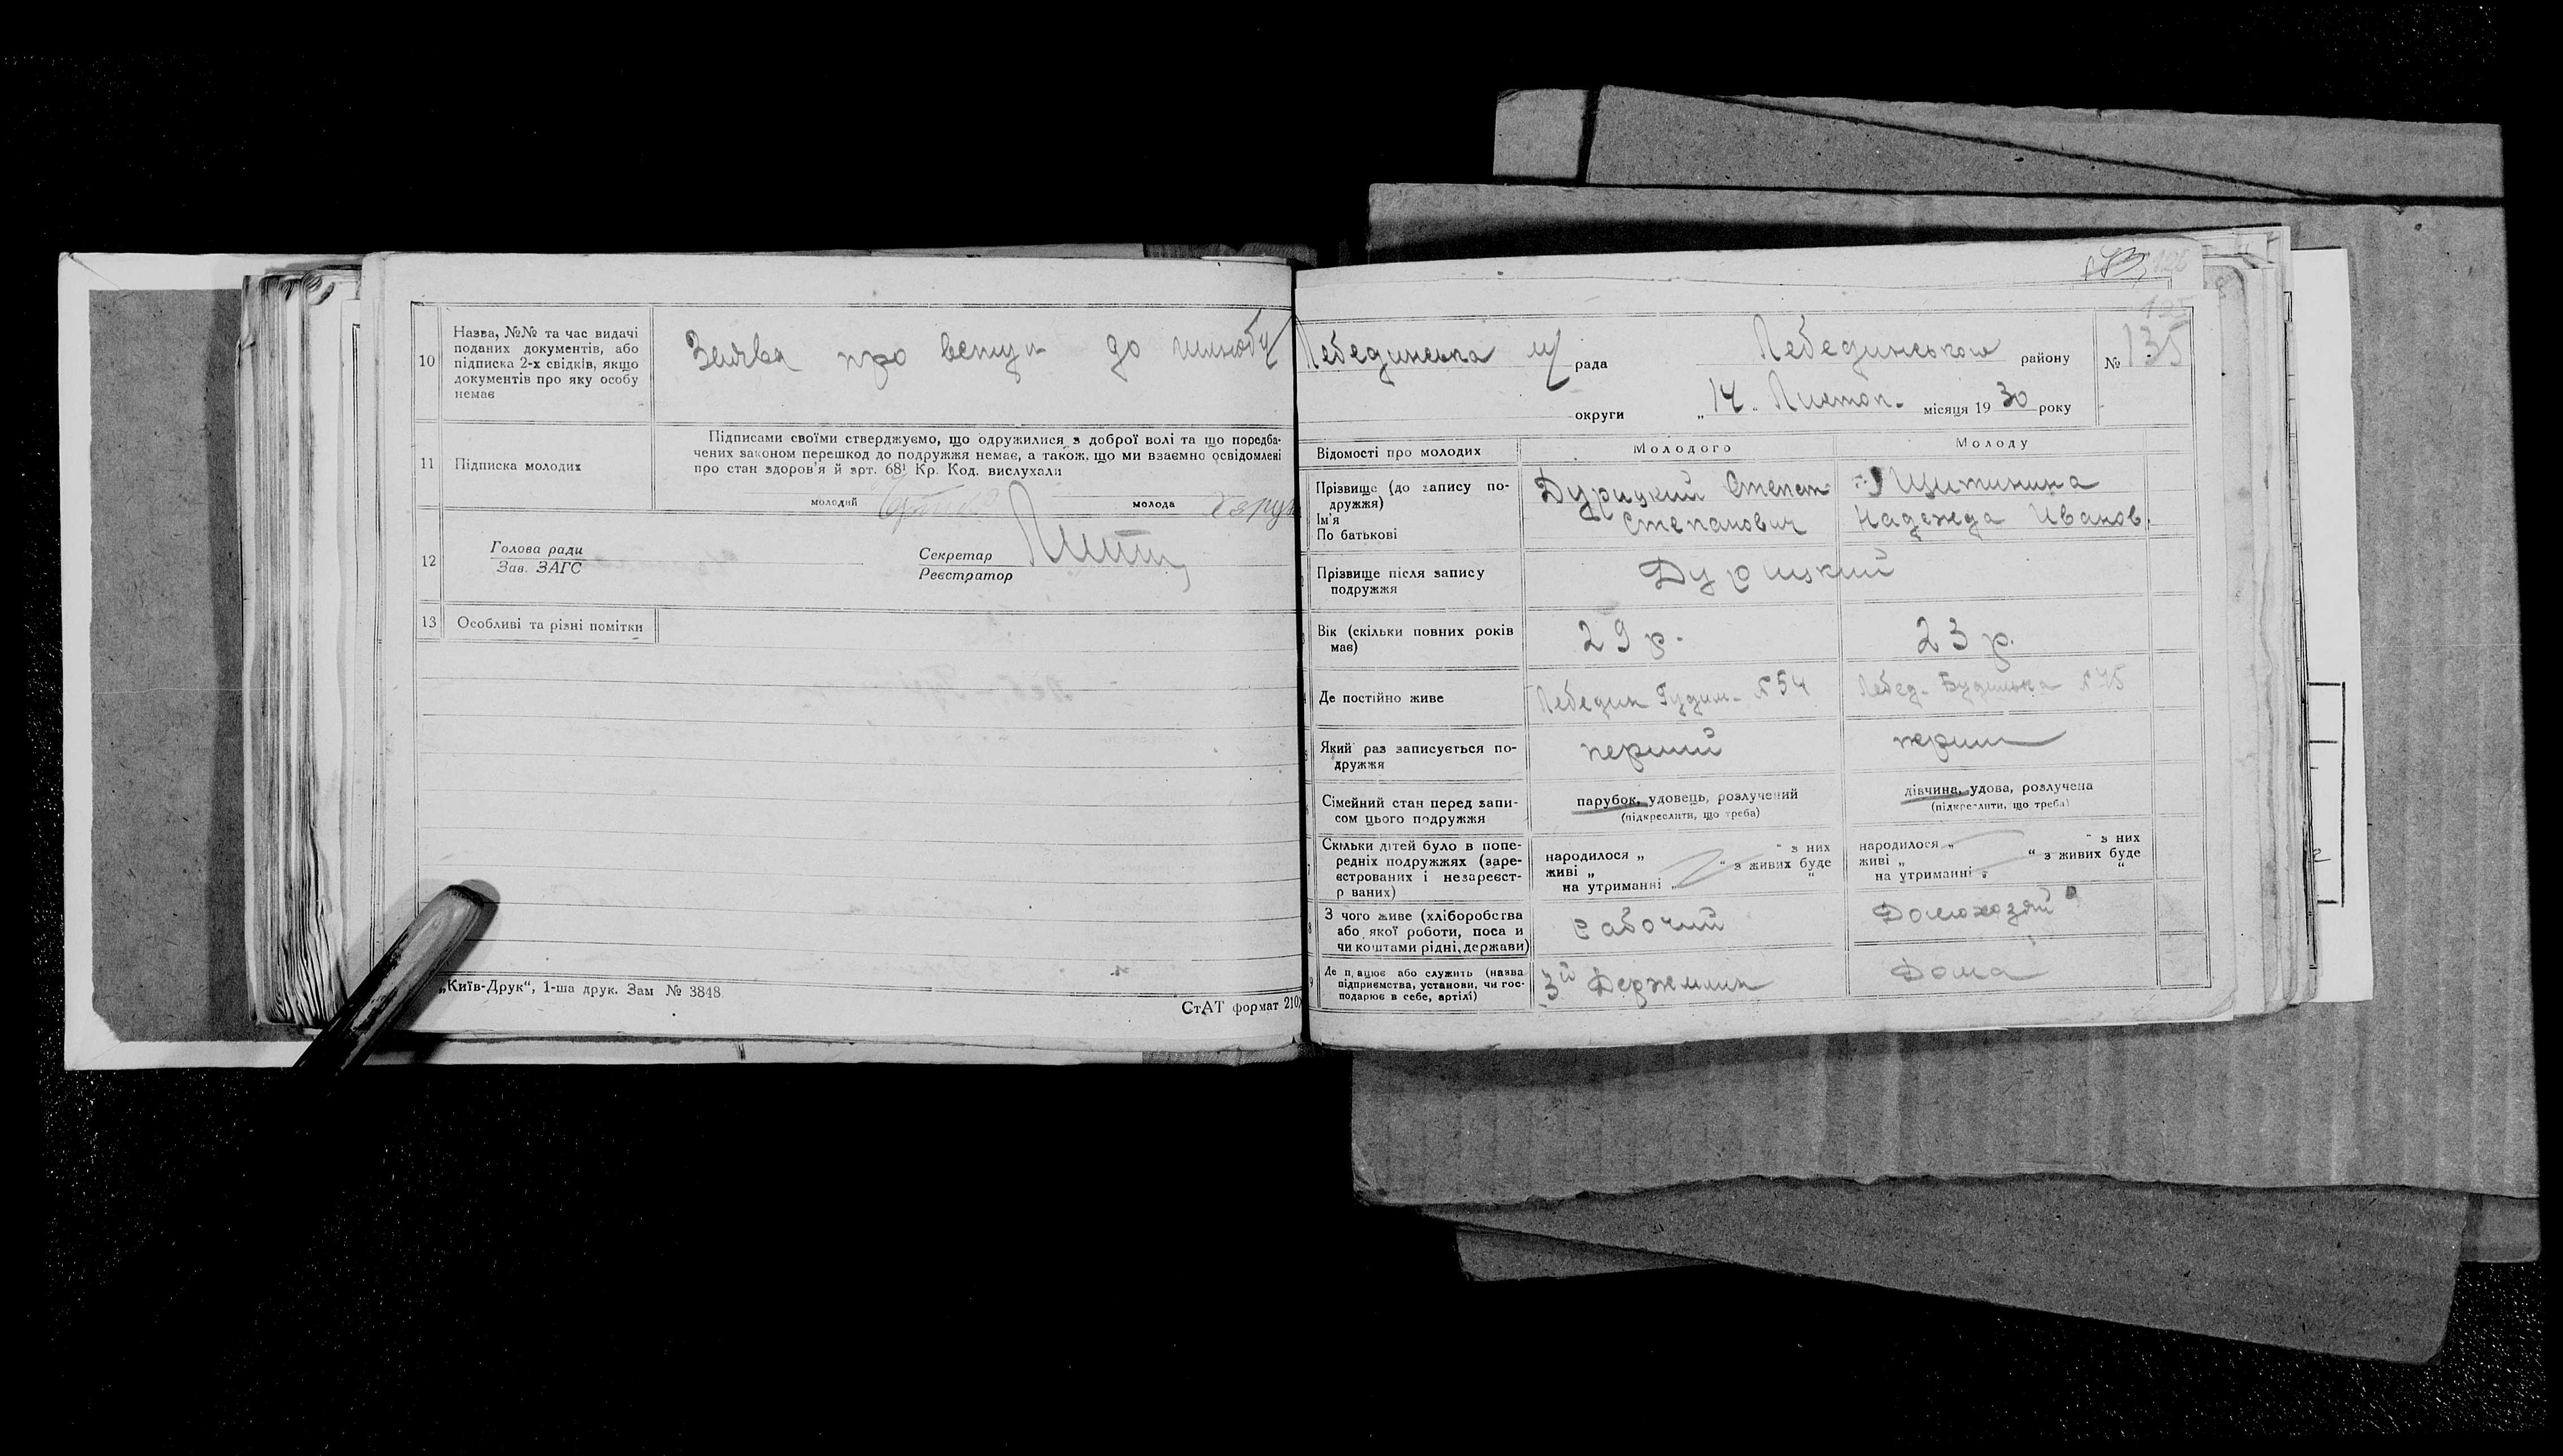 10
Назва, №№ та час видачі
поданих документів, або
підписка 2-х свідків, якщо
документів про яку особу
немає
Заява про вступ до шлюбу
11
Підписка молодих
Підписами своїми стверджуємо, що одружилися з доброї волі та що поредба-
чених законом перешкод до подружжя немає, а також, що ми взаємно освідомлені
про стан здоров'я й арт. 68¹ Кр. Код. вислухали
молодий
молода
12
Голова ради
Зав. ЗАГС
Секретар
Реєстратор
13
Особливі та різні помітки
„Київ-Друк“, 1-ша друк. Зам № 3848
СтАТ формат 210
Лебединська м/ рада
Лебединського району
№ 135
округи
„14„ Листоп. місяця 1930 року
Відомості про молодих
Молодого
Молоду
Прізвище (до запису по-
дружжя)
Ім'я
По батькові
Дурицкий Степан
Степанович
Щитинина
Надежда Иванов.
Прізвище після запису
подружжя
Дурицкий
Вік (скільки повних років
має)
29 р.
23 р.
Де постійно живе
Лебедин Гудим. № 54
Лебед. Будилька № 45
Який раз записується по-
дружжя
перший
перш
Сімейний стан перед запи-
сом цього подружжя
парубок, удовець, розлучений
(підкреслити, що треба)
дівчина, удова, розлучена
(підкреслити, що треба)
Скільки дітей було в попе-
редніх подружжях (заре-
єстрованих і незареєст-
р ваних)
народилося „ “ з них
живі „ “ з живих буде
на утриманні „ “
народилося „ “ з них
живі „ “ з живих буде
на утриманні „ “
8
З чого живе (хліборобства
або якої роботи, поса и
чи коштами рідні, держави)
рабочий
Домохозяй
9
Де п ацює або служить (назва
підприємства, установи, чи гос-
подарює в себе, артілі)
3й Держмлин
Дома